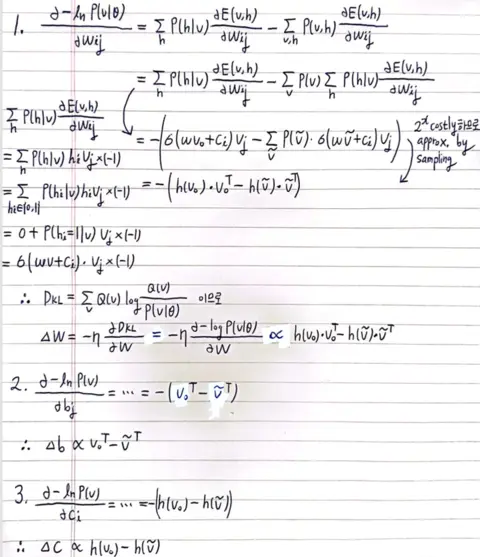 1. ∂-ln P(v|θ)/∂Wij = Σ_h P(h|v) ∂E(v,h)/∂Wij - Σ_{v,h} P(v,h) ∂E(v,h)/∂Wij
= Σ_h P(h|v) ∂E(v,h)/∂Wij - Σ_v P(v) Σ_h P(h|v) ∂E(v,h)/∂Wij
Σ_h P(h|v) ∂E(v,h)/∂Wij
= -(σ(wv₀+ci) Vj - Σ_ṽ P(ṽ)·σ(wṽ+ci) Ṽj)
2^x costly하므로
approx. by
sampling
= Σ_h P(h|v) hi Vj ×(-1)
= Σ_{hi∈{0,1}} P(hi|v) hi Vj ×(-1)
= -(h(v₀)·v₀ᵀ - h(ṽ)·ṽᵀ)
= 0 + P(hi=1|v) Vj ×(-1)
= σ(wv+ci)· Vj ×(-1)
∴ DKL = Σ_v Q(v) log Q(v)/P(v|θ) 이므로
ΔW = -η ∂DKL/∂W = -η ∂-log P(v|θ)/∂W ∝ h(v₀)·v₀ᵀ - h(ṽ)·ṽᵀ
2. ∂-ln P(v)/∂bj = ... = -(v₀ᵀ - ṽᵀ)
∴ Δb ∝ v₀ᵀ - ṽᵀ
3. ∂-ln P(v)/∂Ci = ... = -(h(v₀) - h(ṽ))
∴ ΔC ∝ h(v₀) - h(ṽ)